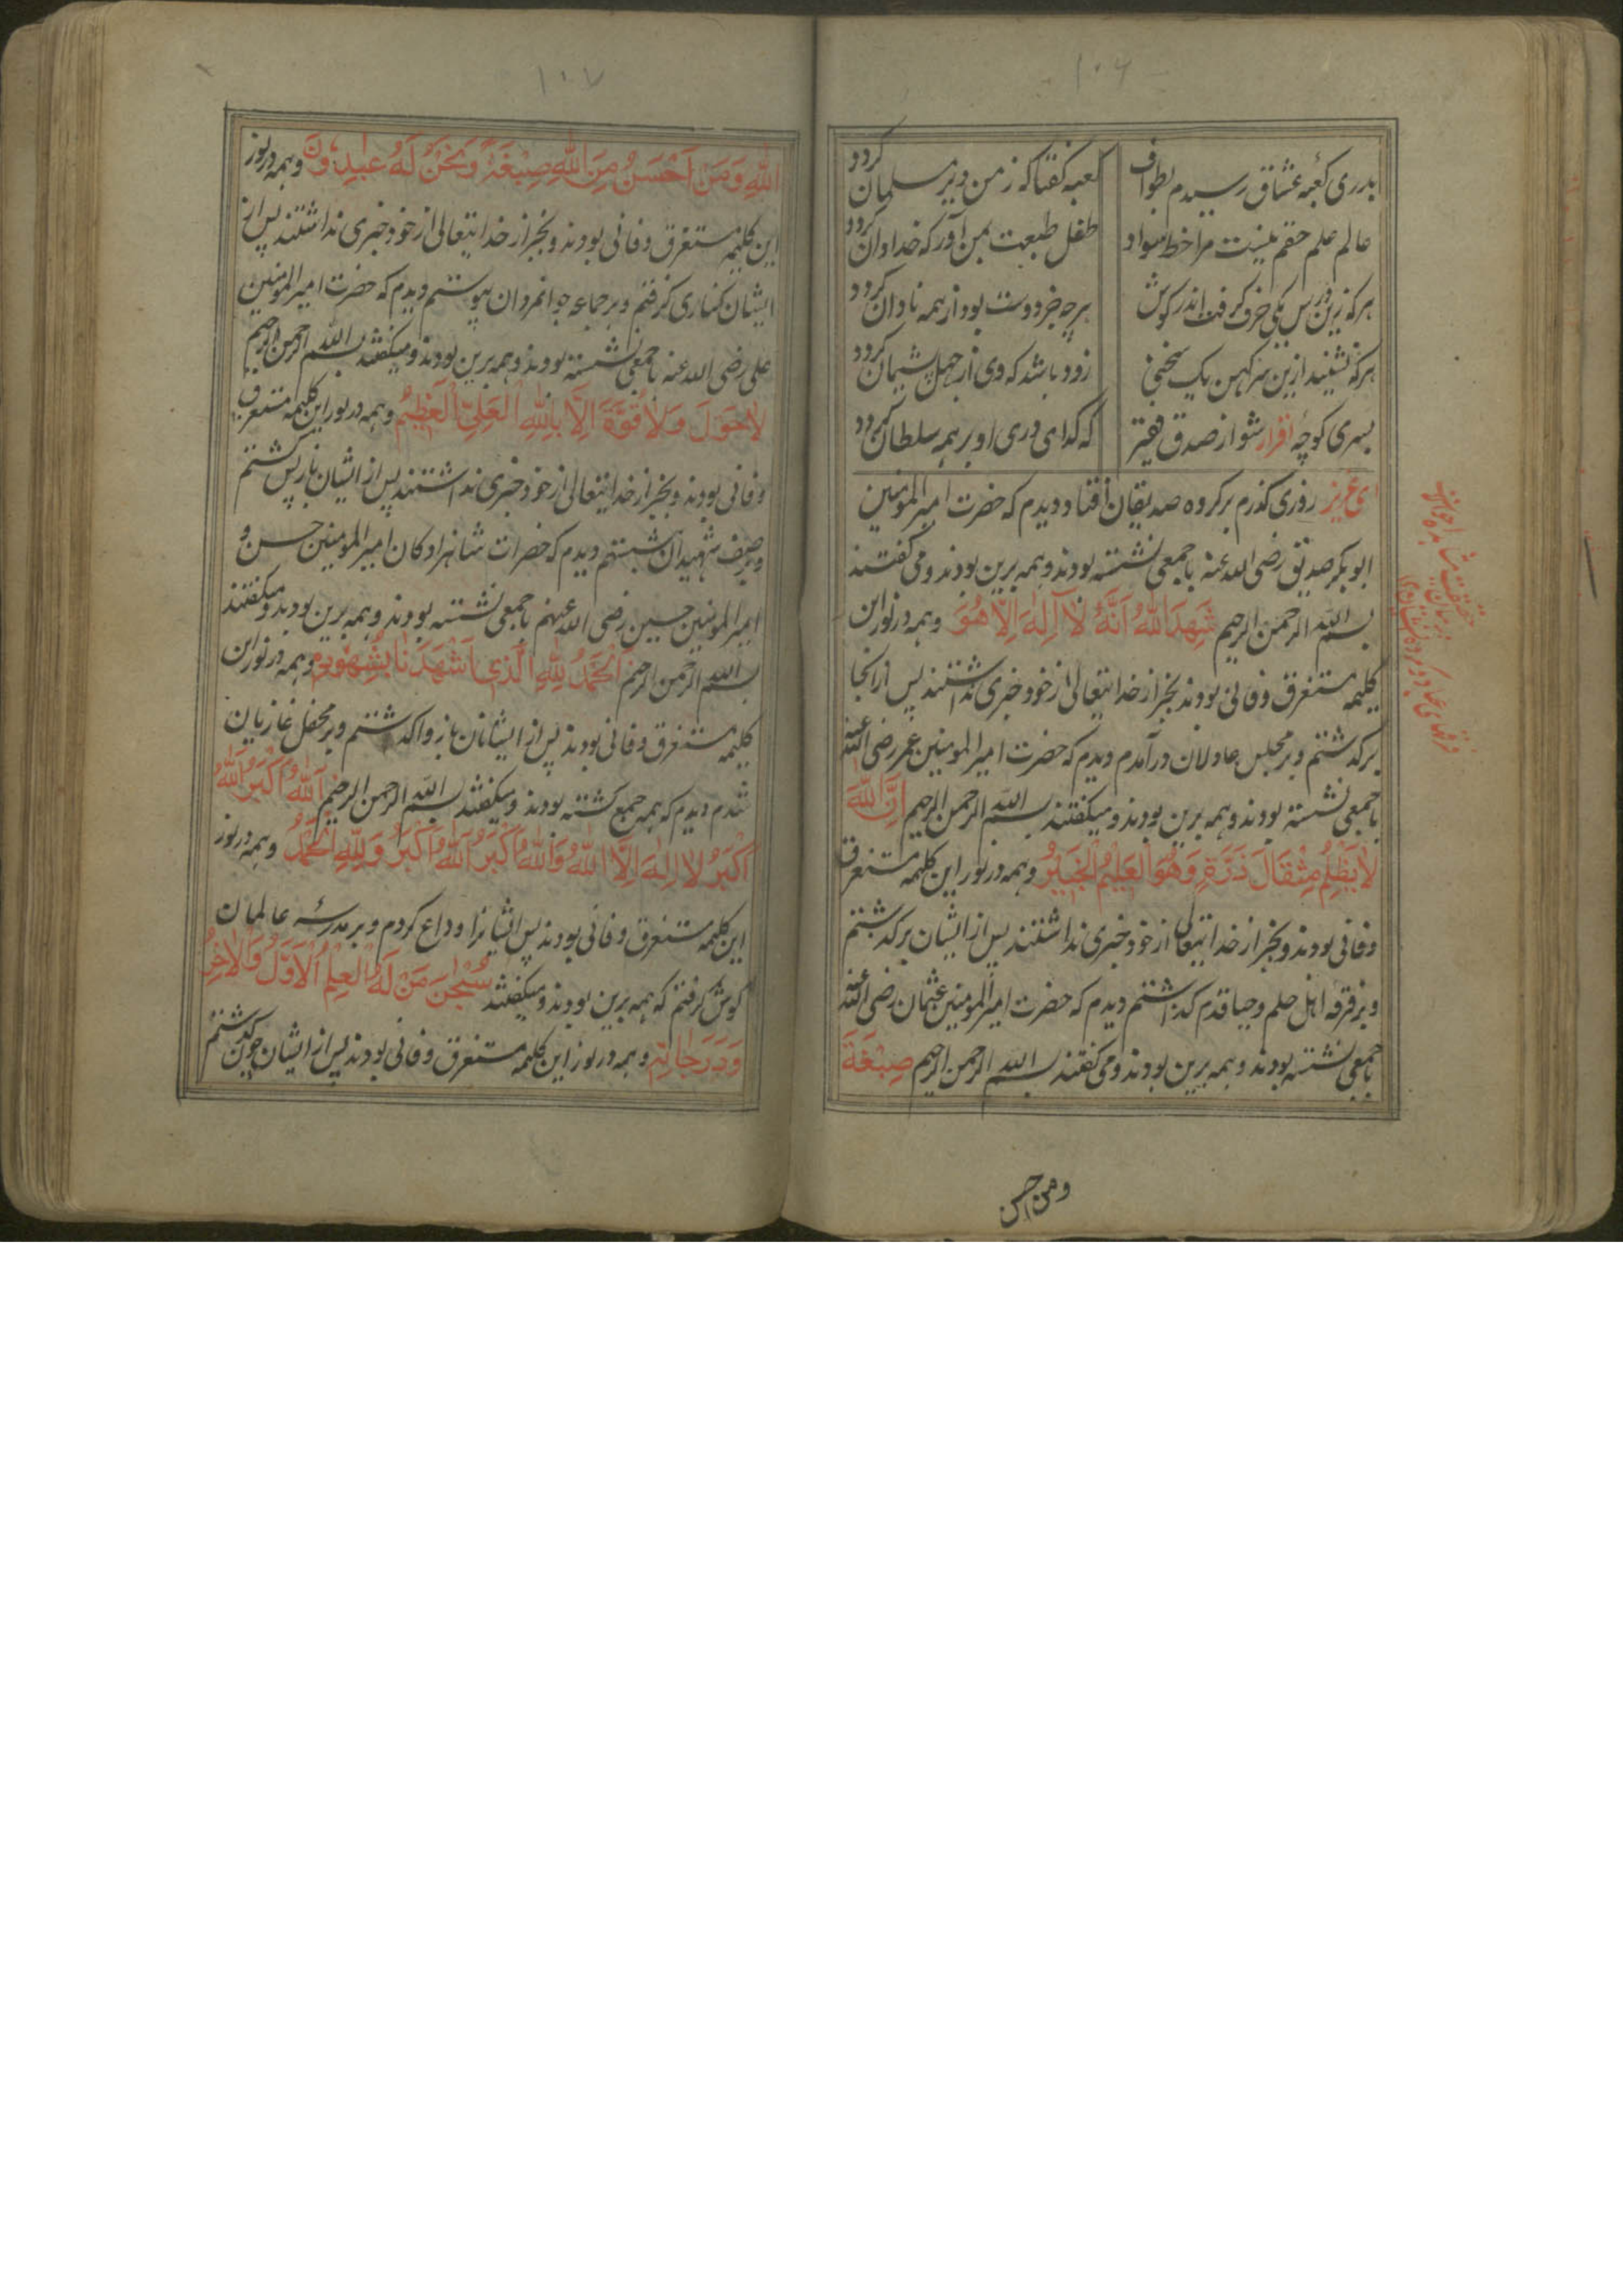 ۱۰۶
بدری کعبهٔ عشاق رسیدم بطواف
کعبه گفتا که ز من دیر مسلمان گردد
عالم علم حقم نیست مرا خط سواد
طفل طبعت بمن آور که خدادان گردد
هرکه زین درس یکی حرف گرفت اندر گوش
هرچه جز دوست بود از همه نادان گردد
هرکه نشنید ازین سر کهن یک سخنی
زود باشد که وی از جهل پشیمان گردد
بسری کوچهٔ اقرار شو از صدق فقیر
که گدای دری او بر همه سلطان گردد
ای عزیز روزی گذرم بر گروه صدیقان افتاد دیدم که حضرت امیرالمومنین
ابوبکر صدیق رضی الله عنه با جمعی نشسته بودند و همه برین بودند و می گفتند
بسم الله الرحمن الرحیم شَهِدَ اللهُ اَنَّهُ لَا اِلٰهَ اِلَّا هُوَ و همه در نور این
کلیمه مستغرق و فانی بودند بجز از خدایتعالی از خود خبری نداشتند پس از آنجا
برگذشتم و بر مجلس عادلان در آمدم دیدم که حضرت امیرالمومنین عمر رضی الله عنه
با جمعی نشسته بودند و همه برین بودند و میگفتند بسم الله الرحمن الرحیم اِنَّ اللهَ
لَا یَظْلِمُ مِثْقَالَ ذَرَّةٍ وَهُوَ الْعَلِیْمُ الْخَبِیْرُ و همه در نور این کلیمه مستغرق
و فانی بودند و بجز از خدایتعالی از خود خبری نداشتند پس از ایشان برگذشتم
و بر فرقه اهل حلم و حیا قدم گذاشتم دیدم که حضرت امیرالمومنین عثمان رضی الله عنه
با جمعی نشسته بودند و همه برین بودند و می گفتند بسم الله الرحمن الرحیم صِبْغَةَ
ومن احسن
۱۰۷
اللهِ وَمَنْ اَحْسَنُ مِنَ اللهِ صِبْغَةً وَنَحْنُ لَهُ عٰبِدُوْنَ و همه در نور
این کلیمه مستغرق و فانی بودند و بجز از خدایتعالی از خود خبری نداشتند پس از
ایشان کناری گرفتم و بر جماعه جوانمردان پیوستم دیدم که حضرت امیرالمومنین
علی رضی الله عنه با جمعی نشسته بودند و همه برین بودند و میگفتند بسم الله الرحمن الرحیم
لَا حَوْلَ وَلَا قُوَّةَ اِلَّا بِاللهِ الْعَلِیِّ الْعَظِیْمِ و همه در نور این کلیمه مستغرق
و فانی بودند و بجز از خدایتعالی از خود خبری نداشتند پس از ایشان باز پس گشتم
و بر صف شهیدان نشستم دیدم که حضرات شاهزادکان امیرالمومنین حسن و
امیرالمومنین حسین رضی الله عنهم با جمعی نشسته بودند و همه برین بودند و میگفتند
بسم الله الرحمن الرحیم اَلْحَمْدُ لِلّٰهِ الَّذِی اَشْهَدَنَا بِشُهُوْدِهِ و همه در نور این
کلیمه مستغرق و فانی بودند پس از ایشانان باز واگذشتم و بر محفل غازیان
شدم دیدم که همه جمع گشته بودند و میگفتند بسم الله الرحمن الرحیم اَللهُ اَکْبَرُ اَللهُ
اَکْبَرُ لَا اِلٰهَ اِلَّا اللهُ وَاللهُ اَکْبَرُ اَللهُ اَکْبَرُ وَلِلّٰهِ الْحَمْدُ و همه در نور
این کلیمه مستغرق و فانی بودند پس ایشانرا وداع کردم و بر مدرسهٔ عالمان
گوش گرفتم که همه برین بودند و میگفتند سُبْحٰنَ مَنْ لَهُ الْعِلْمُ الْاَوَّلُ وَالْاٰخِرُ
وَدَرَجَاتِهِ و همه در نور این کلیمه مستغرق و فانی بودند پس از ایشان چون گذشتم